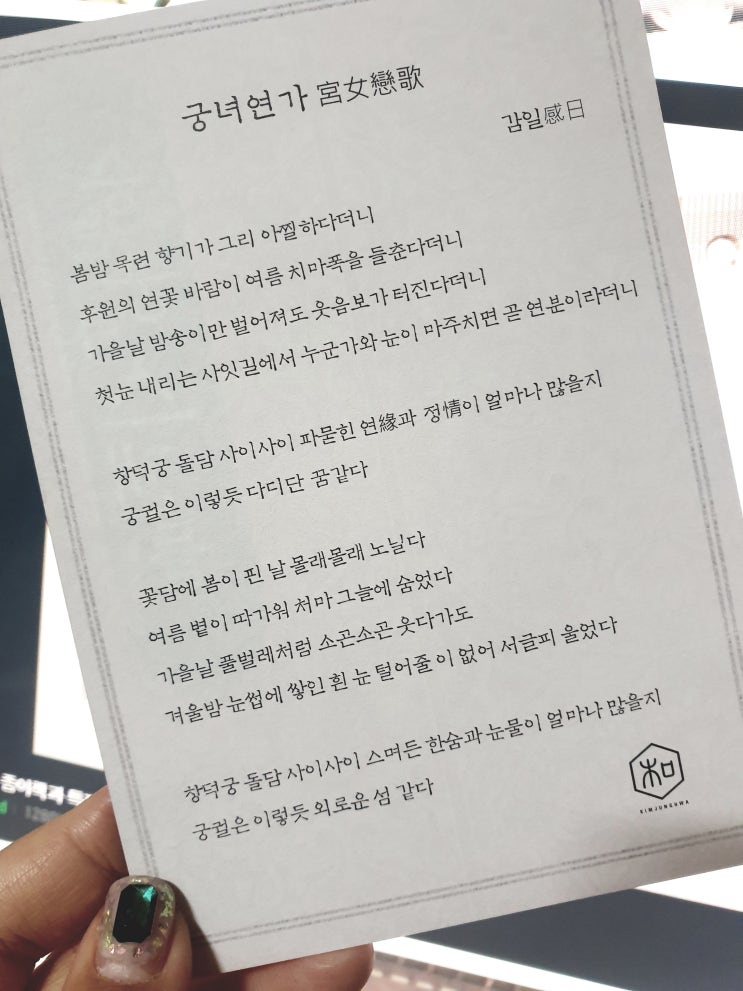 궁녀연가 宮女戀歌
감일感日
봄밤 목련 향기가 그리 아찔하다더니
후원의 연꽃 바람이 여름 치마폭을 들춘다더니
가을날 밤송이만 벌어져도 웃음보가 터진다더니
첫눈 내리는 사잇길에서 누군가와 눈이 마주치면 곧 연분이라더니
창덕궁 돌담 사이사이 파묻힌 연緣과 정情이 얼마나 많을지
궁궐은 이렇듯 다디단 꿈같다
꽃담에 봄이 핀 날 몰래몰래 노닐다
여름 볕이 따가워 처마 그늘에 숨었다
가을날 풀벌레처럼 소곤소곤 웃다가도
겨울밤 눈썹에 쌓인 흰 눈 털어줄 이 없어 서글피 울었다
창덕궁 돌담 사이사이 스며든 한숨과 눈물이 얼마나 많을지
궁궐은 이렇듯 외로운 섬 같다
和
KIMJUNGHWA